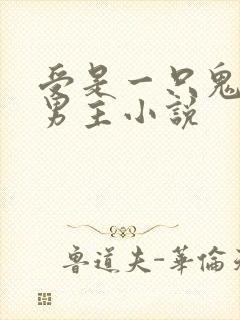 受是一只鬼
男主小説
魯道夫-華倫